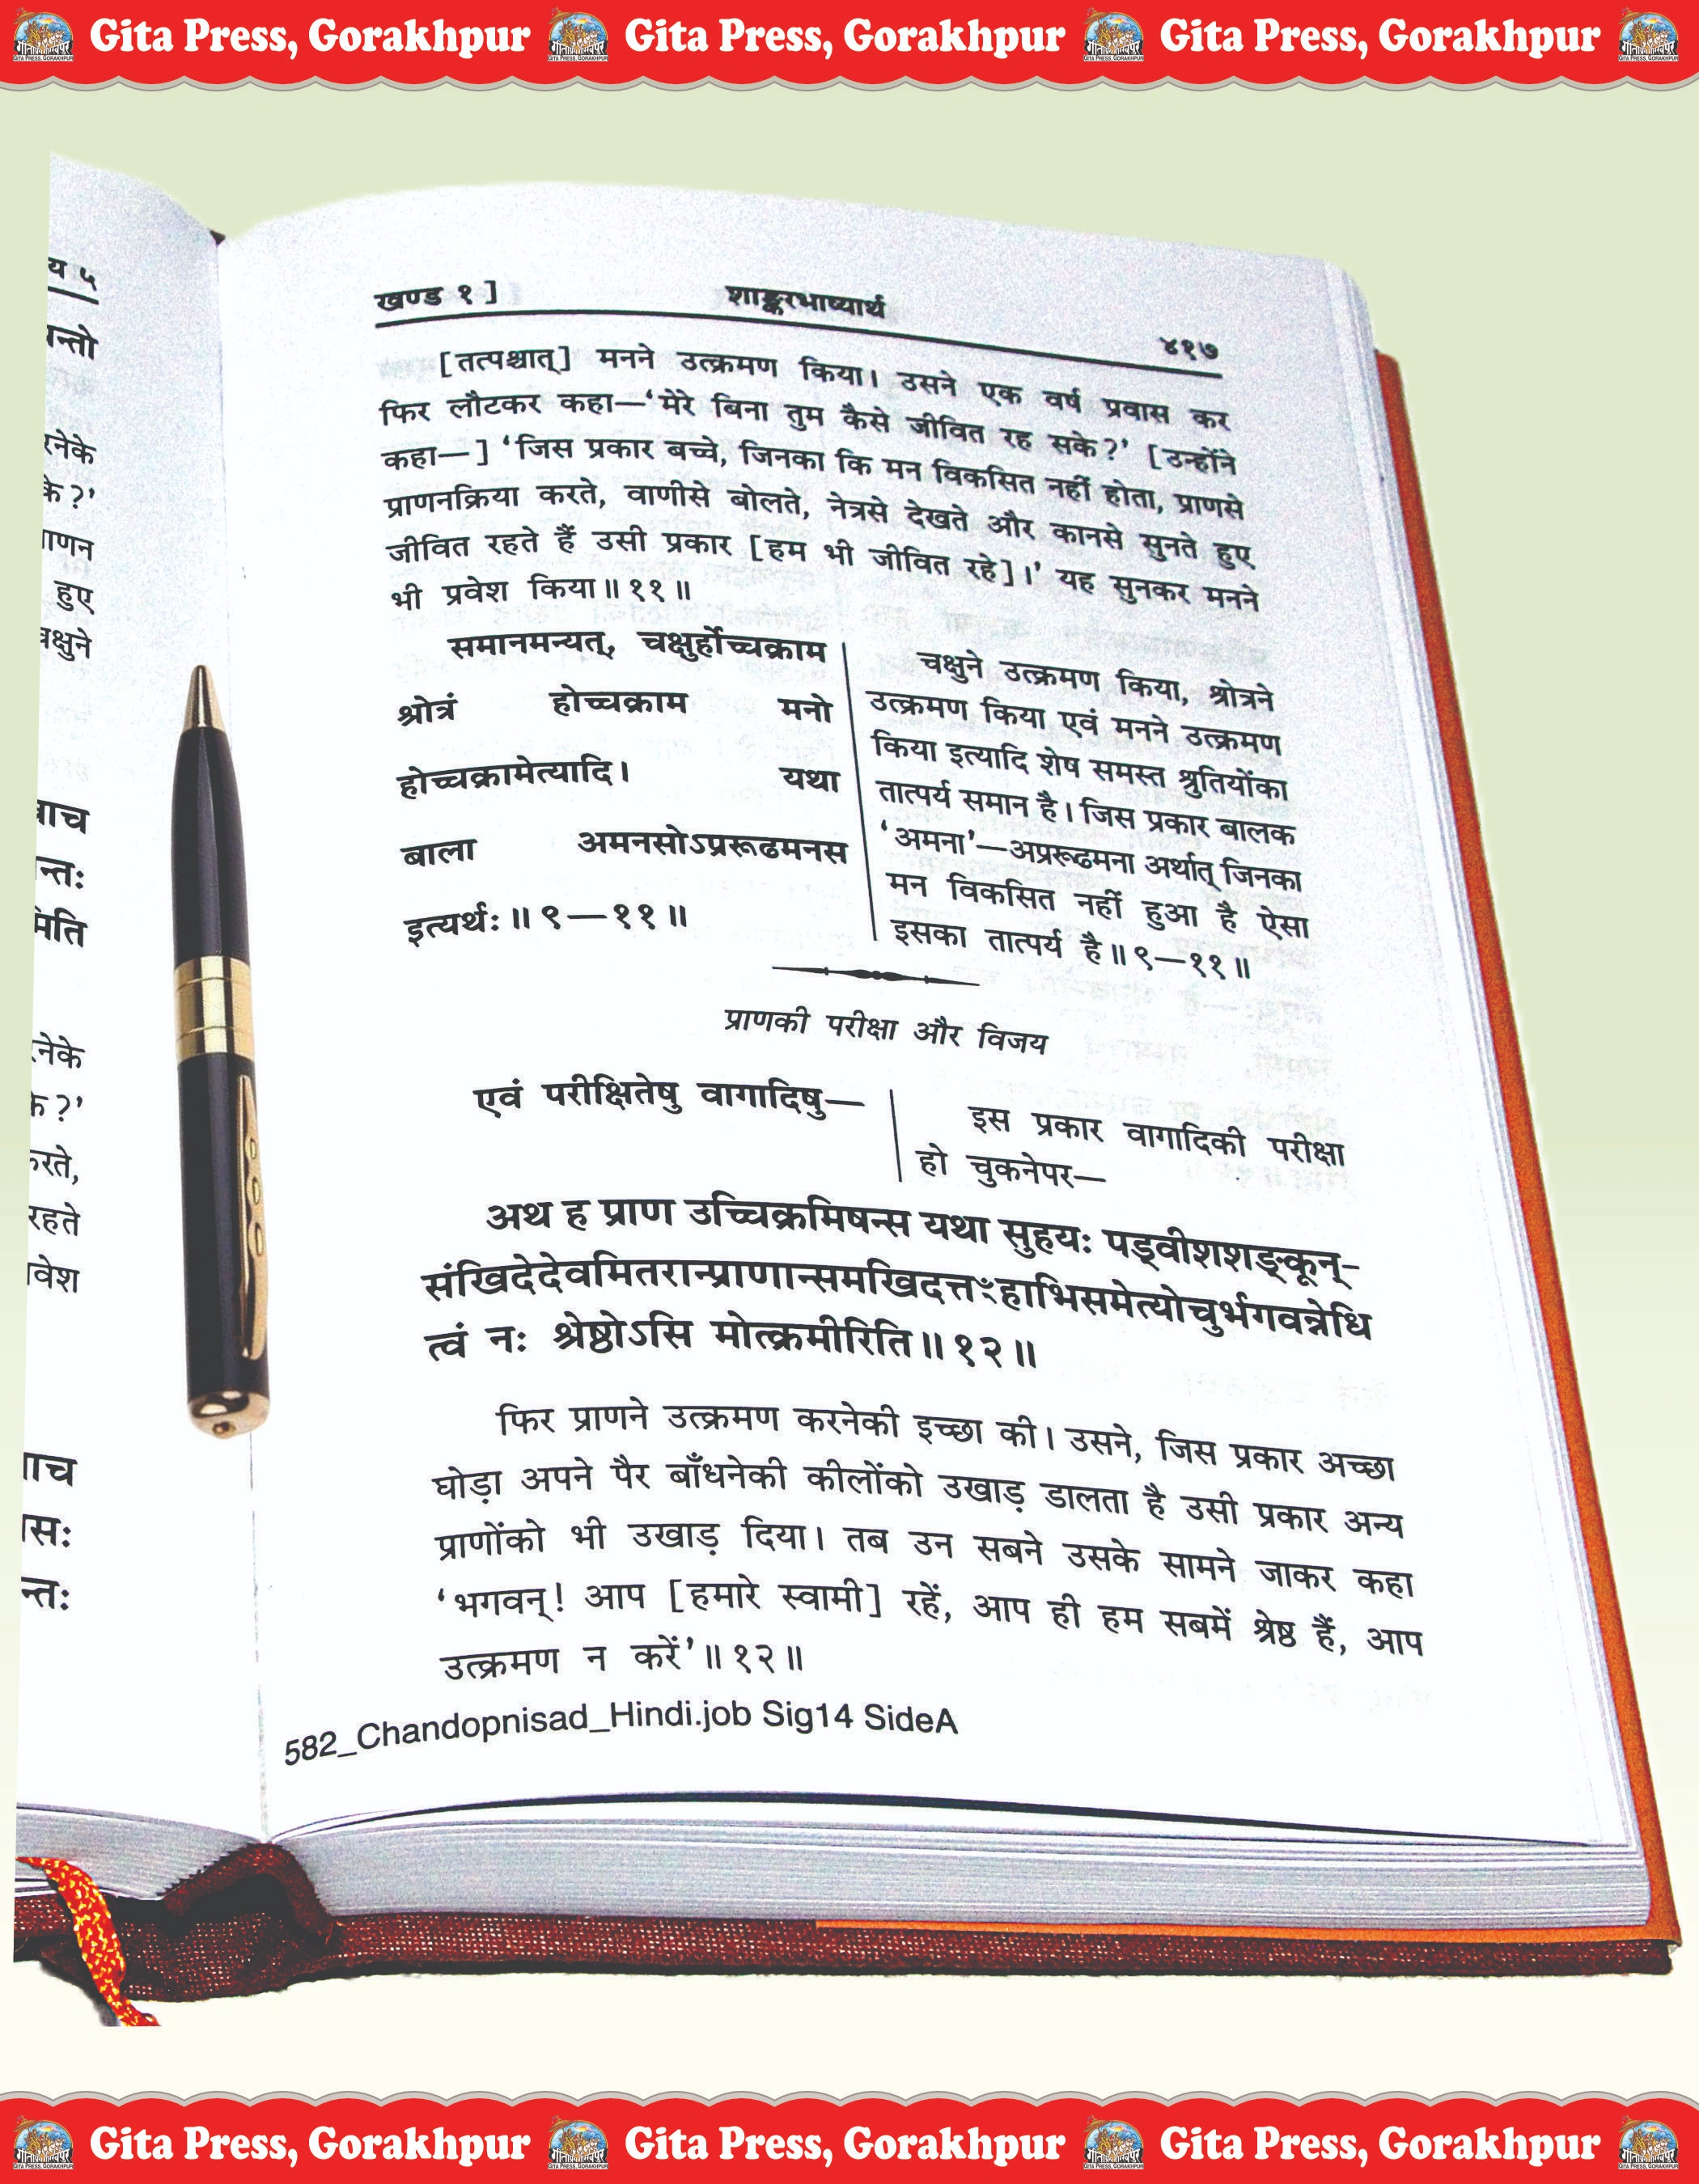 Gita Press, Gorakhpur Gita Press, Gorakhpur Gita Press, Gorakhpur
य ५
न्तो
रनेके
के?'
ाणन
हुए
चक्षुने
वाच
न्तः
मिति
रनेके
के?'
करते,
रहते
प्रवेश
वाच
सः
न्तः
खण्ड १] शाङ्करभाष्यार्थ ४१७
[तत्पश्चात्] मनने उत्क्रमण किया। उसने एक वर्ष प्रवास कर
फिर लौटकर कहा—‘मेरे बिना तुम कैसे जीवित रह सके?’ [उन्होंने
कहा—] ‘जिस प्रकार बच्चे, जिनका कि मन विकसित नहीं होता, प्राणसे
प्राणनक्रिया करते, वाणीसे बोलते, नेत्रसे देखते और कानसे सुनते हुए
जीवित रहते हैं उसी प्रकार [हम भी जीवित रहे]।’ यह सुनकर मनने
भी प्रवेश किया॥११॥
समानमन्यत्, चक्षुर्होच्चक्राम
श्रोत्रं होच्चक्राम मनो
होच्चक्रामेत्यादि। यथा
बाला अमनसोऽप्ररूढमनस
इत्यर्थः॥९—११॥
चक्षुने उत्क्रमण किया, श्रोत्रने
उत्क्रमण किया एवं मनने उत्क्रमण
किया इत्यादि शेष समस्त श्रुतियोंका
तात्पर्य समान है। जिस प्रकार बालक
‘अमना’—अप्ररूढमना अर्थात् जिनका
मन विकसित नहीं हुआ है ऐसा
इसका तात्पर्य है॥९—११॥
प्राणकी परीक्षा और विजय
एवं परीक्षितेषु वागादिषु—
इस प्रकार वागादिकी परीक्षा
हो चुकनेपर—
अथ ह प्राण उच्चिक्रमिषन्स यथा सुहयः पड्वीशशङ्कून्-
संखिदेदेवमितरान्प्राणान्समखिदत्तꣳहाभिसमेत्योचुर्भगवन्नेधि
त्वं नः श्रेष्ठोऽसि मोत्क्रमीरिति॥१२॥
फिर प्राणने उत्क्रमण करनेकी इच्छा की। उसने, जिस प्रकार अच्छा
घोड़ा अपने पैर बाँधनेकी कीलोंको उखाड़ डालता है उसी प्रकार अन्य
प्राणोंको भी उखाड़ दिया। तब उन सबने उसके सामने जाकर कहा
‘भगवन्! आप [हमारे स्वामी] रहें, आप ही हम सबमें श्रेष्ठ हैं, आप
उत्क्रमण न करें’॥१२॥
582_Chandopnisad_Hindi.job Sig14 SideA
Gita Press, Gorakhpur Gita Press, Gorakhpur Gita Press, Gorakhpur